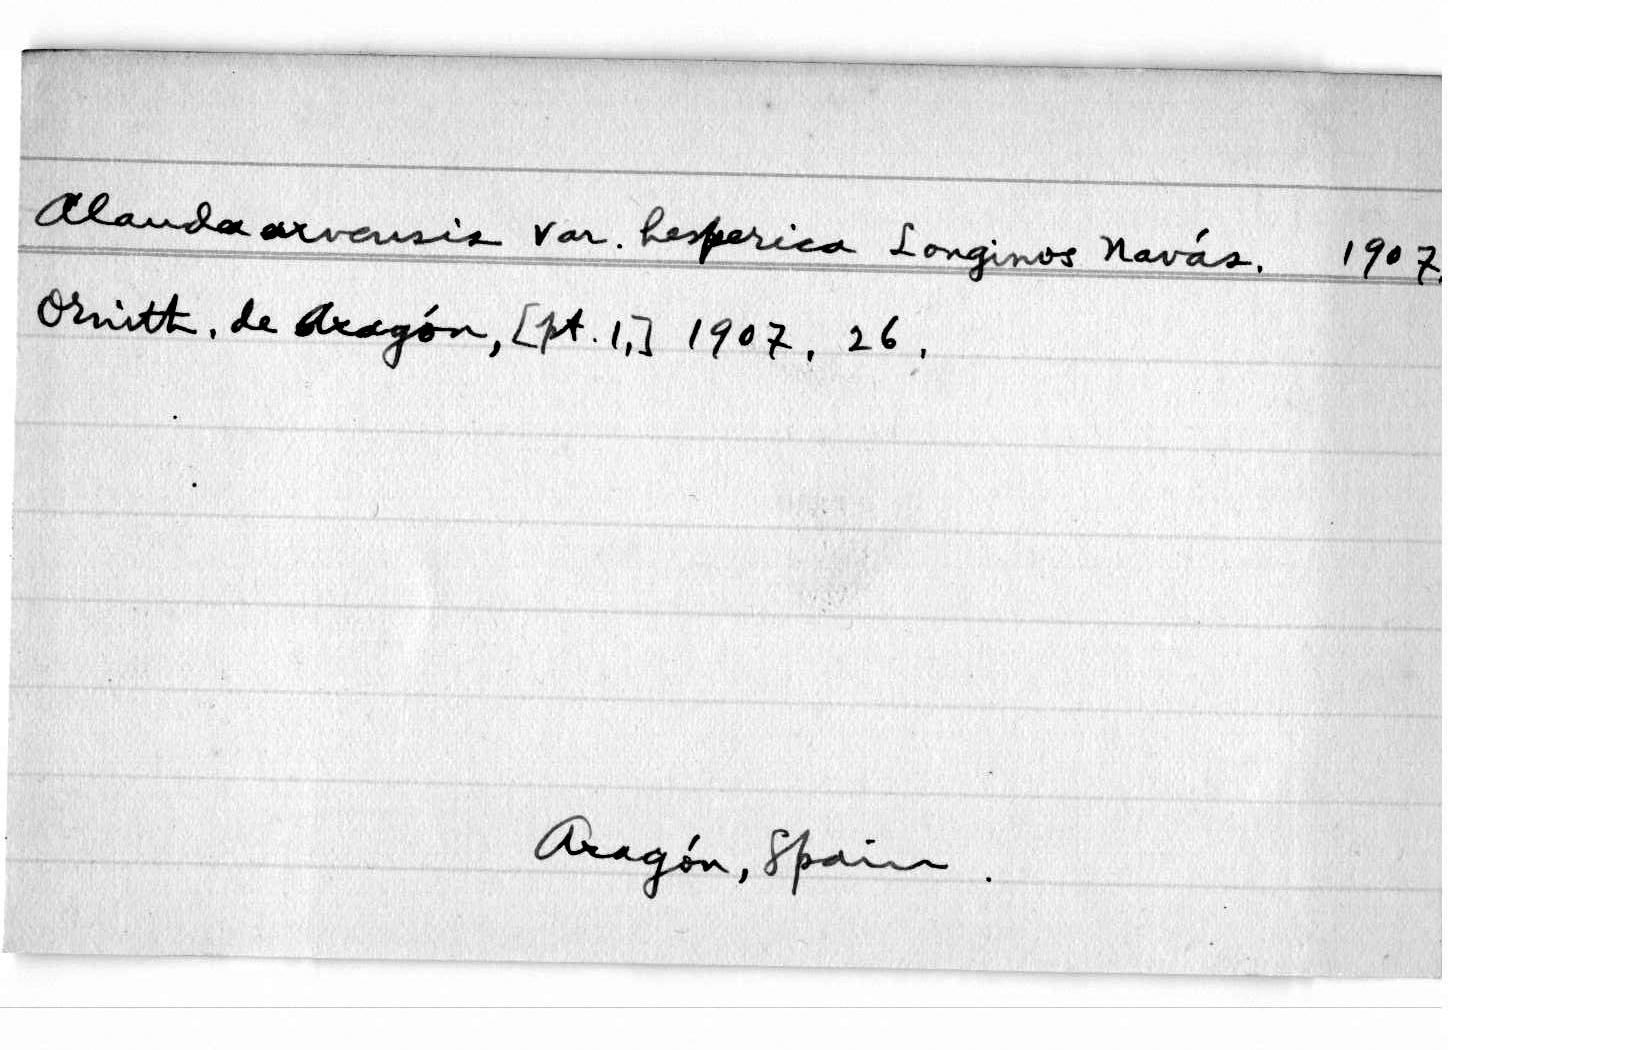 Alauda arvensis var. hesperica Longinos Navás. 1907.
Ornith. de Aragón, [pt. 1,] 1907, 26.
Aragón, Spain.